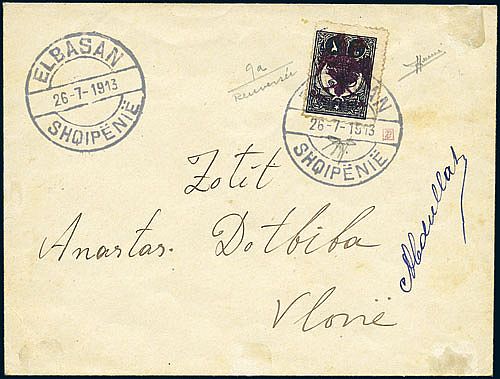 ELBASAN
26-7-1913
SHQIPËNIË
9a
Renversée
ELBASAN
26-7-1913
SHQIPËNIË
Zotit
Anastas. Dotbiba
Vlonë
Abdullah